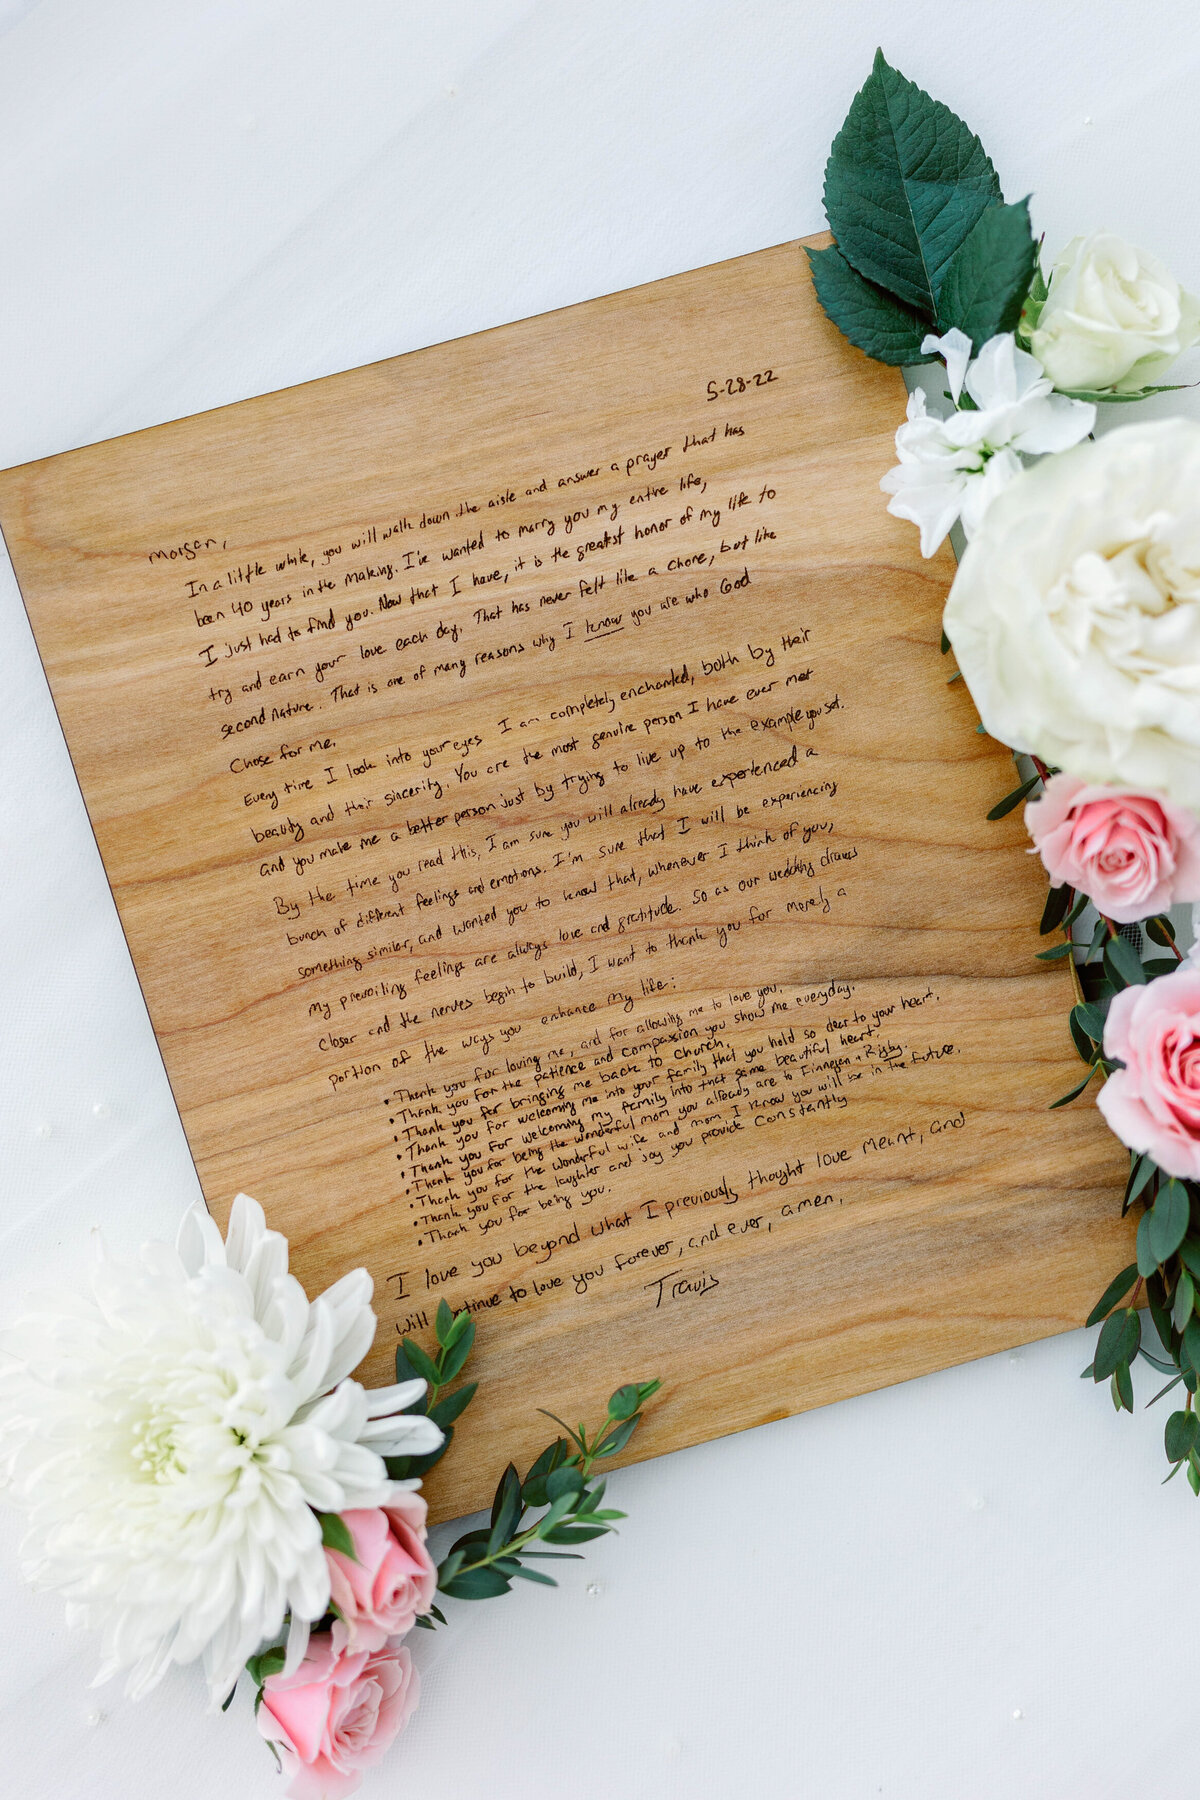 5-28-22
Morgan,
In a little while, you will walk down the aisle and answer a prayer that has
been 40 years in the making. I've wanted to marry you my entire life,
I just had to find you. Now that I have, it is the greatest honor of my life to
try and earn your love each day. That has never felt like a chore, but like
second nature. That is one of many reasons why I know you are who God
chose for me.
Every time I look into your eyes I am completely enchanted, both by their
beauty and their sincerity. You are the most genuine person I have ever met
and you make me a better person just by trying to live up to the example you set.
By the time you read this, I am sure you will already have experienced a
bunch of different feelings and emotions. I'm sure that I will be experiencing
something similar, and wanted you to know that, whenever I think of you,
my prevailing feelings are always love and gratitude. So as our wedding draws
closer and the nerves begin to build, I want to thank you for merely a
portion of the ways you enhance my life:
• Thank you for loving me, and for allowing me to love you.
• Thank you for the patience and compassion you show me everyday.
• Thank you for bringing me back to church.
• Thank you for welcoming me into your family that you hold so dear to your heart.
• Thank you for welcoming my family into that same beautiful heart.
• Thank you for being the wonderful mom you already are to Finnegan & Rigby.
• Thank you for the wonderful wife and mom I know you will be in the future.
• Thank you for the laughter and joy you provide constantly
• Thank you for being you.
I love you beyond what I previously thought love meant, and
will ntinue to love you forever, and ever, amen.
Travis